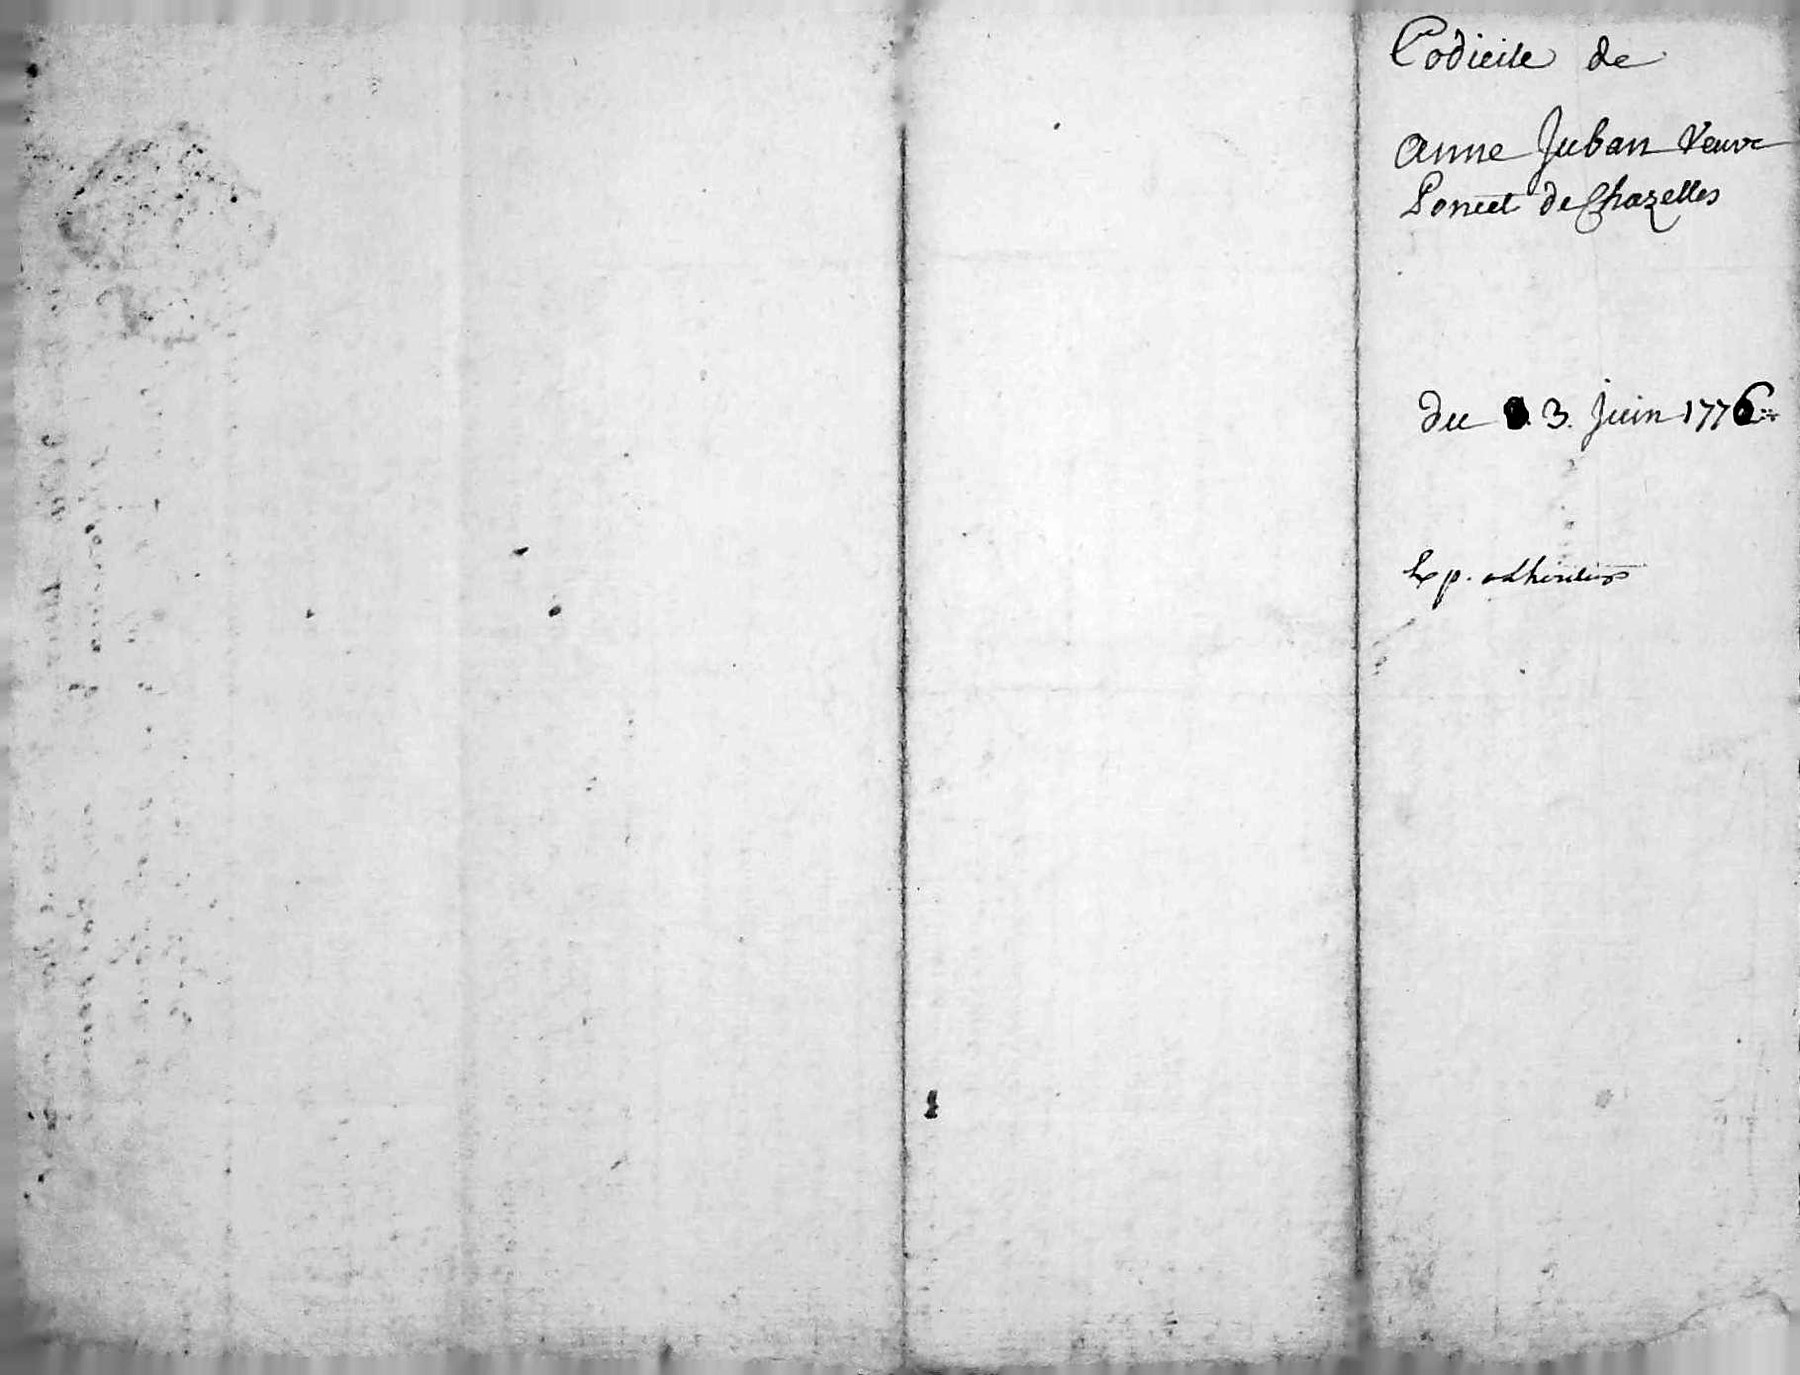 Codicile de
anne Juban Veuve
Poncet de Chazelles
du 3. Juin 1776
Exp. a Lhéritier